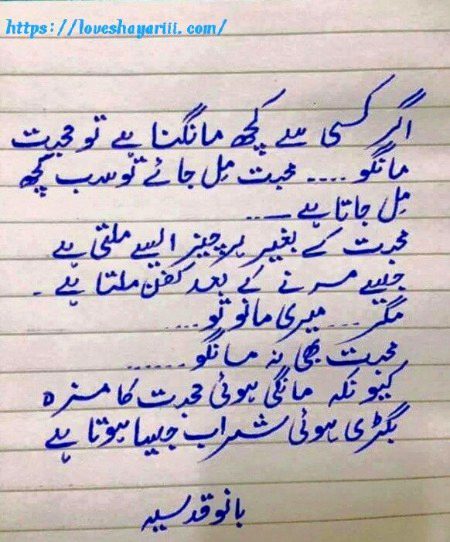 https://loveshayariii.com/
اگر کسی سے کچھ مانگنا ہے تو محبت
مانگو .... محبت مِل جائے تو سب کچھ
مِل جاتا ہے ـــ ..
محبت کے بغیر ہر چیز ایسے ملتی ہے
جیسے مرنے کے بعد کفن ملتا ہے ۔
مگر ... میری مانو تو ....
محبت بھی نہ مانگو ......
کیونکہ مانگی ہوئی محبت کا مزہ
بگڑی ہوئی شراب جیسا ہوتا ہے
بانو قدسیہ